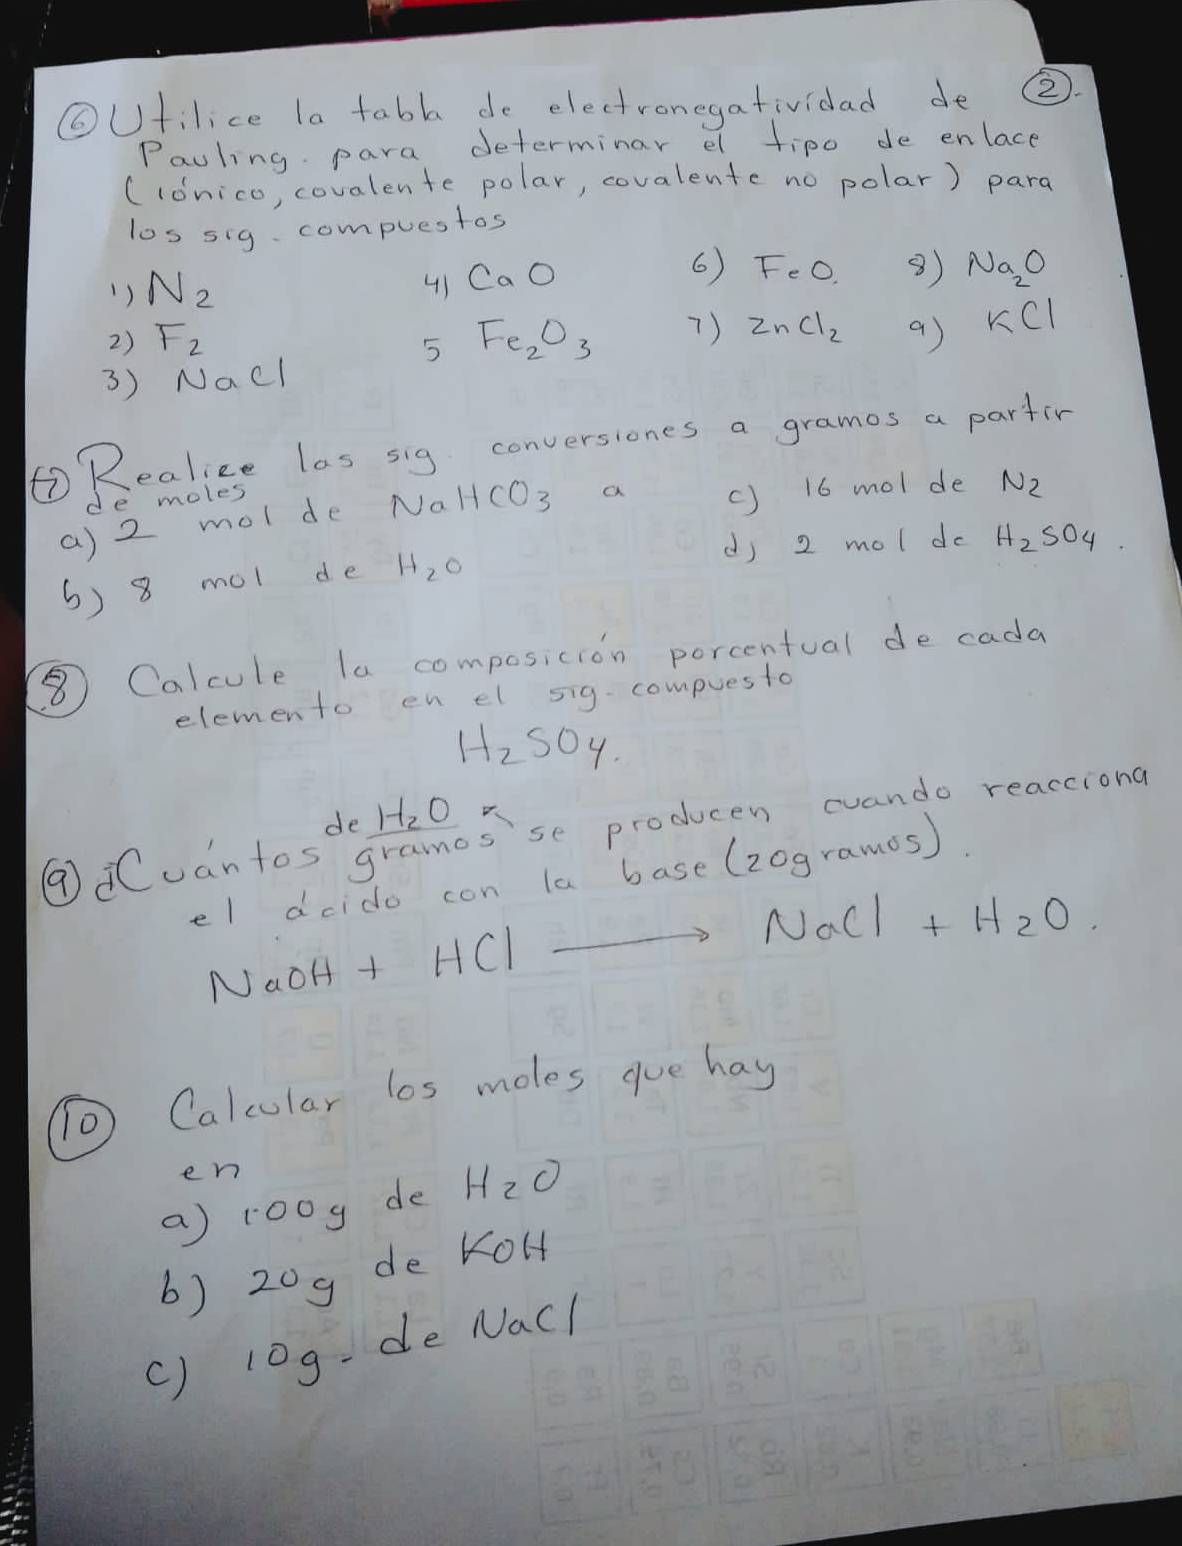 ②.
⑥ Utilice la tabla de electronegatividad de
Pauling. para determinar el tipo de enlace
(iónico, covalente polar, covalente no polar) para
los sig. compuestos
1) N2
2) F2
3) NaCl
4) CaO
5 Fe2O3
6) FeO.
7) ZnCl2
8) Na2O
9) KCl
⑦ Realice las sig. conversiones a gramos a partir
de moles
a) 2 mol de NaHCO3 a
b) 8 mol de H2O
c) 16 mol de N2
d) 2 mol de H2SO4.
⑧ Calcule la composición porcentual de cada
elemento en el sig. compuesto
H2SO4.
de H2O
⑨ ¿Cuántos gramos se producen cuando reacciona
el ácido con la base (20gramos).
NaOH + HCl → NaCl + H2O.
⑩ Calcular los moles que hay
en
a) 100g de H2O
b) 20g de KOH
c) 10g. de NaCl